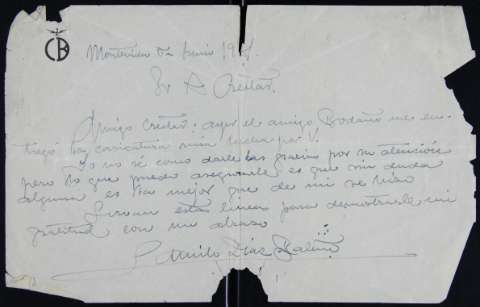 CB
Montevideo Junio
Sr A Creitar.
Amigo Creitar: ayer el amigo me en-
trego la caricatura mia hecha por V.
Yo no sé como darle las gracias por su atención
pero lo que puedo asegurarle es que sin duda
alguna es la mejor que de mi se
Sirvan estas lineas para demostrarle mi
gratitud con un abrazo
Camilo Diaz Baliño